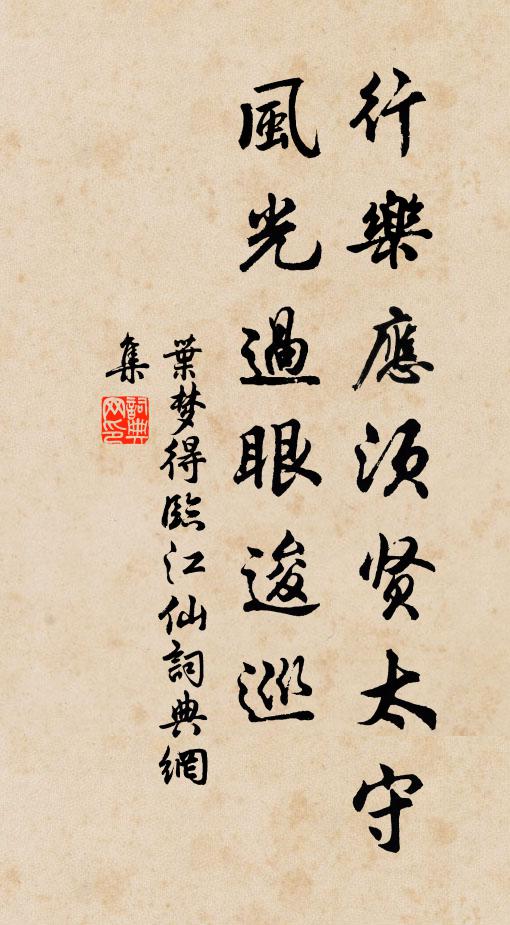 行樂應須贤太守
風光過眼逡巡
葉梦得臨江仙詞典網
集
詞典網印